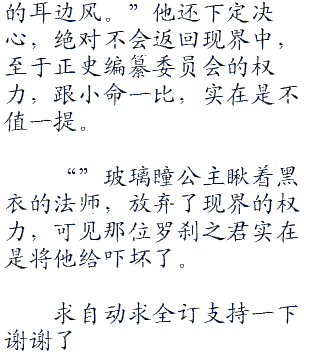 的耳边风。”他还下定决
心，绝对不会返回现界中，
至于正史编纂委员会的权
力，跟小命一比，实在是不
值一提。
“”玻璃瞳公主瞅着黑
衣的法师，放弃了现界的权
力，可见那位罗刹之君实在
是将他给吓坏了。
求自动求全订支持一下
谢谢了